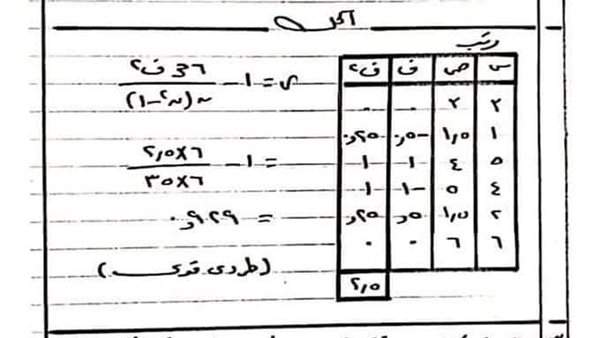 الحل
رتب
س ص ف ف٢
٣ ٣ ٠ ٠
١ ١,٥ -٠,٥ ٠,٢٥
٥ ٤ ١ ١
٤ ٥ -١ ١
٢ ١,٥ ٠,٥ ٠,٢٥
٦ ٦ ٠ ٠
٢,٥
ر = ١ - ٦ مجـ ف٢ / ن(ن٢ - ١)
= ١ - ٦×٢,٥ / ٦×٣٥
= ٠,٩٢٩
(طردى قوى)